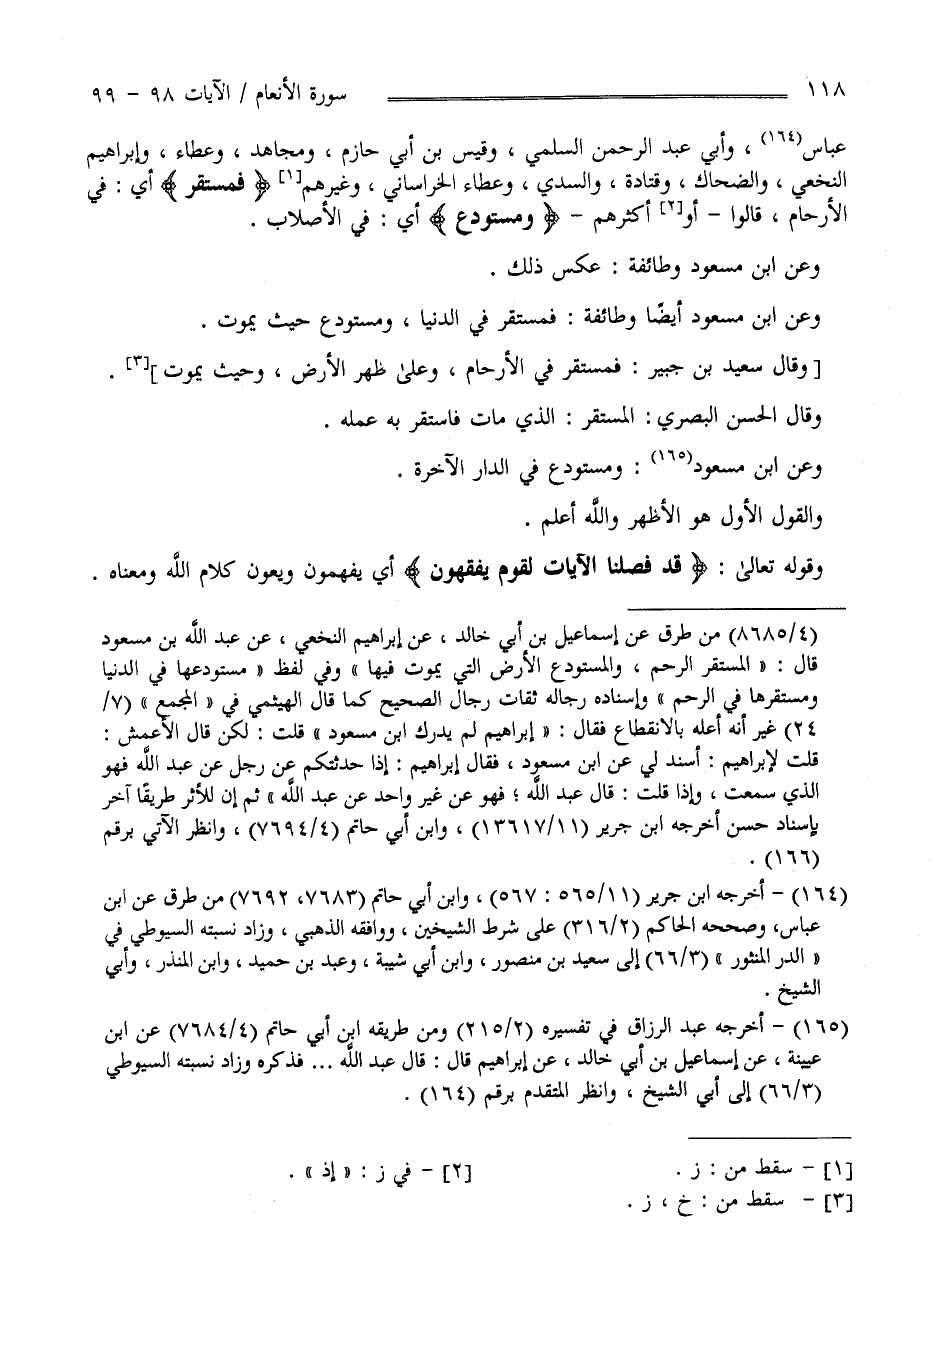 ١١٨ سورة الأنعام / الآيات ٩٨ - ٩٩
عباس(١٦٤) ، وأبي عبد الرحمن السلمي ، وقيس بن أبي حازم ، ومجاهد ، وعطاء ، وإبراهيم
النخعي ، والضحاك ، وقتادة ، والسدي ، وعطاء الخراساني ، وغيرهم[١] ﴿ فمستقر ﴾ أي : في
الأرحام ، قالوا - أو[٢] أكثرهم - ﴿ ومستودع ﴾ أي : في الأصلاب .
وعن ابن مسعود وطائفة : عكس ذلك .
وعن ابن مسعود أيضًا وطائفة : فمستقر في الدنيا ، ومستودع حيث يموت .
[ وقال سعيد بن جبير : فمستقر في الأرحام ، وعلىٰ ظهر الأرض ، وحيث يموت ][٣] .
وقال الحسن البصري : المستقر : الذي مات فاستقر به عمله .
وعن ابن مسعود(١٦٥) : ومستودع في الدار الآخرة .
والقول الأول هو الأظهر واللَّه أعلم .
وقوله تعالىٰ : ﴿ قد فصلنا الآيات لقوم يفقهون ﴾ أي يفهمون ويعون كلام اللَّه ومعناه .
(٨٦٨٥/٤) من طرق عن إسماعيل بن أبي خالد ، عن إبراهيم النخعي ، عن عبد اللَّه بن مسعود
قال : « المستقر الرحم ، والمستودع الأرض التي يموت فيها » وفي لفظ « مستودعها في الدنيا
ومستقرها في الرحم » وإسناده رجاله ثقات رجال الصحيح كما قال الهيثمي في « المجمع » (٧/
٢٤) غير أنه أعله بالانقطاع فقال : « إبراهيم لم يدرك ابن مسعود » قلت : لكن قال الأعمش :
قلت لإبراهيم : أسند لي عن ابن مسعود ، فقال إبراهيم : إذا حدثتكم عن رجل عن عبد اللَّه فهو
الذي سمعت ، وإذا قلت : قال عبد اللَّه ؛ فهو عن غير واحد عن عبد اللَّه » ثم إن للأثر طريقًا آخر
بإسناد حسن أخرجه ابن جرير (١٣٦١٧/١١) ، وابن أبي حاتم (٧٦٩٤/٤) ، وانظر الآتي برقم
(١٦٦) .
(١٦٤) - أخرجه ابن جرير (٥٦٥/١١ : ٥٦٧) ، وابن أبي حاتم (٧٦٨٣، ٧٦٩٢) من طرق عن ابن
عباس، وصححه الحاكم (٣١٦/٢) على شرط الشيخين ، ووافقه الذهبي ، وزاد نسبته السيوطي في
« الدر المنثور » (٦٦/٣) إلى سعيد بن منصور ، وابن أبي شيبة ، وعبد بن حميد ، وابن المنذر ، وأبي
الشيخ .
(١٦٥) - أخرجه عبد الرزاق في تفسيره (٢١٥/٢) ومن طريقه ابن أبي حاتم (٧٦٨٤/٤) عن ابن
عيينة ، عن إسماعيل بن أبي خالد ، عن إبراهيم قال : قال عبد اللَّه ... فذكره وزاد نسبته السيوطي
(٦٦/٣) إلى أبي الشيخ ، وانظر المتقدم برقم (١٦٤) .
[١] - سقط من : ز . [٢] - في ز : « إذ » .
[٣] - سقط من : خ ، ز .